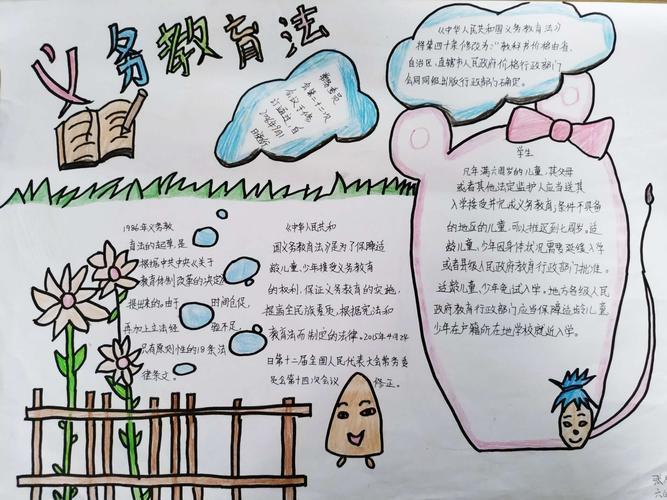 义务教育法
常务委员
会第二十二次
会议于修
订通过,自
《中华人民共和国义务教育法》
将第四十条修改为:"教科书价格由省、
自治区、直辖市人民政府价格行政部门
会同同级出版行政部门确定。
学生
凡年满六周岁的儿童,其父母
或者其他法定监护人应当送其
入学接受并完成义务教育;条件不具备
的地区的儿童,可以推迟到七周岁。适
龄儿童、少年因身体状况需要延缓入学
或者县级人民政府教育行政部门批准。
适龄儿童、少年免试入学。地方各级人民
政府教育行政部门应当保障适龄儿童、
少年在户籍所在地学校就近入学。
1986年义务教
育法的起草,是
根据中共中央《关于
教育体制改革的决定》
提出来的。由于 时间仓促,
再加上立法经 验不足,
只有原则性的18条法
律条文。
《中华人民共和
国义务教育法》是为了保障适
龄儿童、少年接受义务教育
的权利,保证义务教育的实施,
提高全民族素质,根据宪法和
教育法而制定的法律。2015年4月24
日第十二届全国人民代表大会常务委
员会第十四次会议 修正。